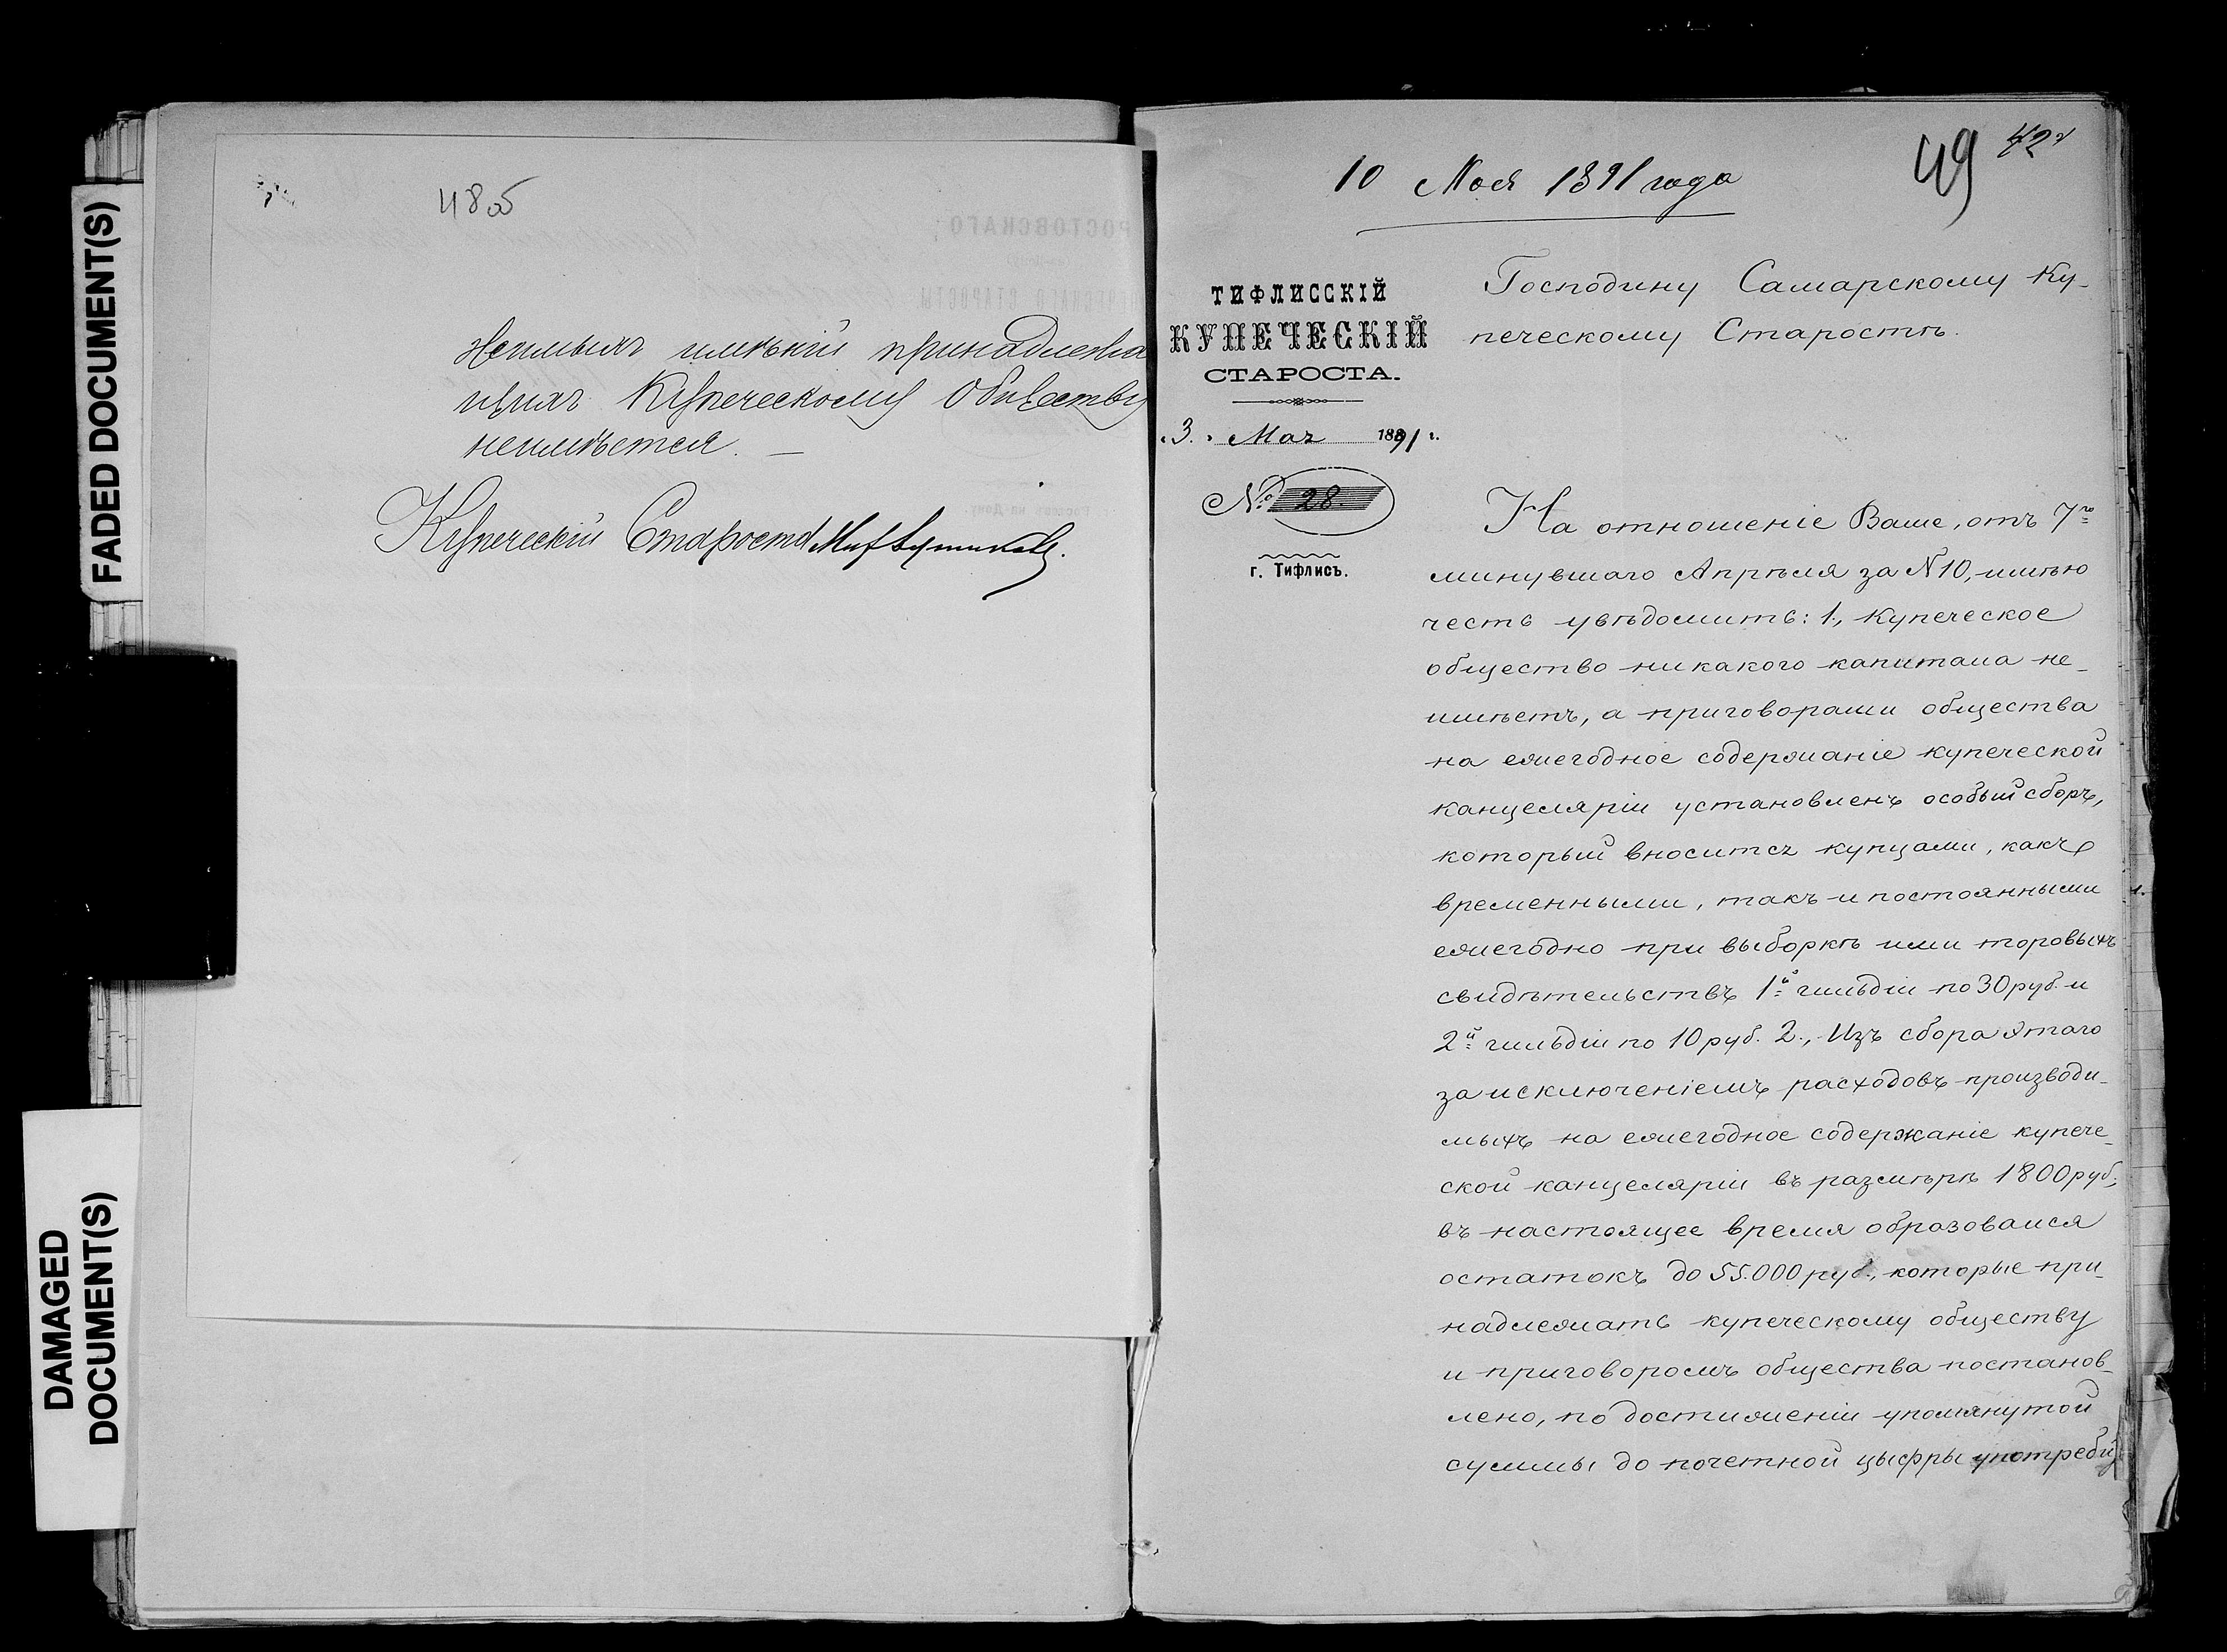 FADED DOCUMENT(S)
DAMAGED
DOCUMENT(S)
48 об
имѣній принадлежа
щихъ Купеческому Обществу
неимѣется. —
Купеческій Староста
49
10 Мая 1891 года
Господину Самарскому Ку-
печескому Старостѣ.
ТИФЛИССКІЙ
КУПЕЧЕСКІЙ
СТАРОСТА.
„3„ Мая 1891 г.
№ 28.
г. Тифлисъ.
На отношеніе Ваше, отъ 7го
минувшаго Апрѣля за N10, имѣю
честь увѣдомить: 1, Купеческое
общество никакого капитала не-
имѣетъ, а приговорами общества
на ежегодное содержаніе купеческой
канцеляріи установленъ особый сборъ,
который вносится купцами, какъ
временными, такъ и постоянными
ежегодно при выборкѣ ими торовыхъ
свидѣтельствъ 1й гильдіи по 30 руб. и
2й гильдіи по 10 руб. 2., Изъ сбора этого
за исключеніемъ расходовъ производи-
мыхъ на ежегодное содержаніе купече-
ской канцеляріи въ размѣрѣ 1800 руб.;
въ настоящее время образовался
остатокъ до 55.000 руб., которые при-
надлежать купеческому обществу
и приговоромъ общества постанов-
лено, по достиженіи упомянутой
суммы до почетной цыфры употреби